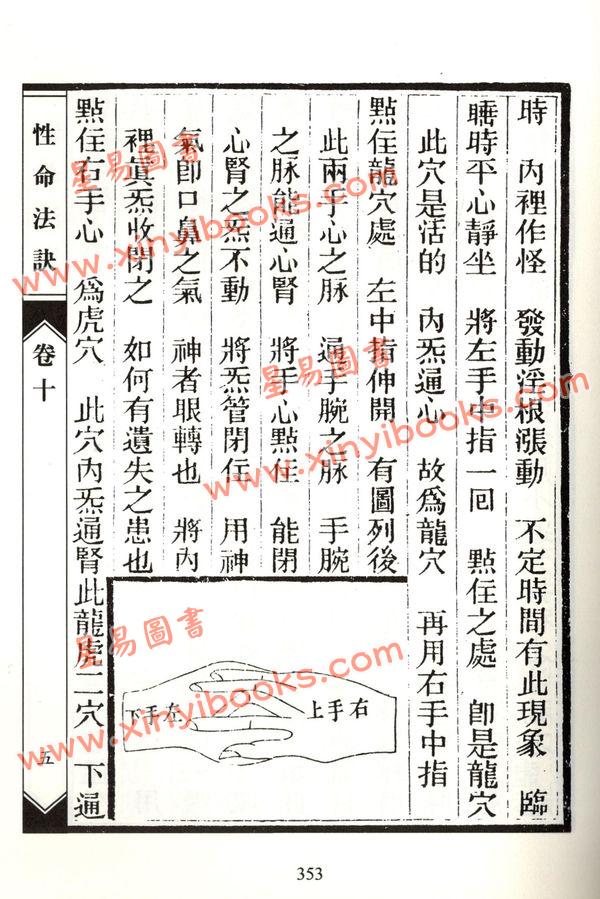 時　內裡作怪　發動淫根漲動　不定時間有此現象　臨
睡時平心靜坐　將左手中指一回　點住之處　卽是龍穴
此穴是活的　內炁通心　故爲龍穴　再用右手中指
點住龍穴處　左中指伸開　有圖列後
此兩手心之脉　通手腕之脉　手腕
之脉能通心腎　將手心點住　能閉
心腎之炁不動　將炁管閉住　用神
氣卽口鼻之氣　神者眼轉也　將內
裡眞炁收閉之　如何有遺失之患也
點住右手心　爲虎穴　此穴內炁通腎此龍虎二穴　下通
右手上
左手下
性命法訣
卷十
五
353
星易圖書
www.xinyibooks.com
星易圖書
www.xinyibooks.com
星易圖書
www.xinyibooks.com